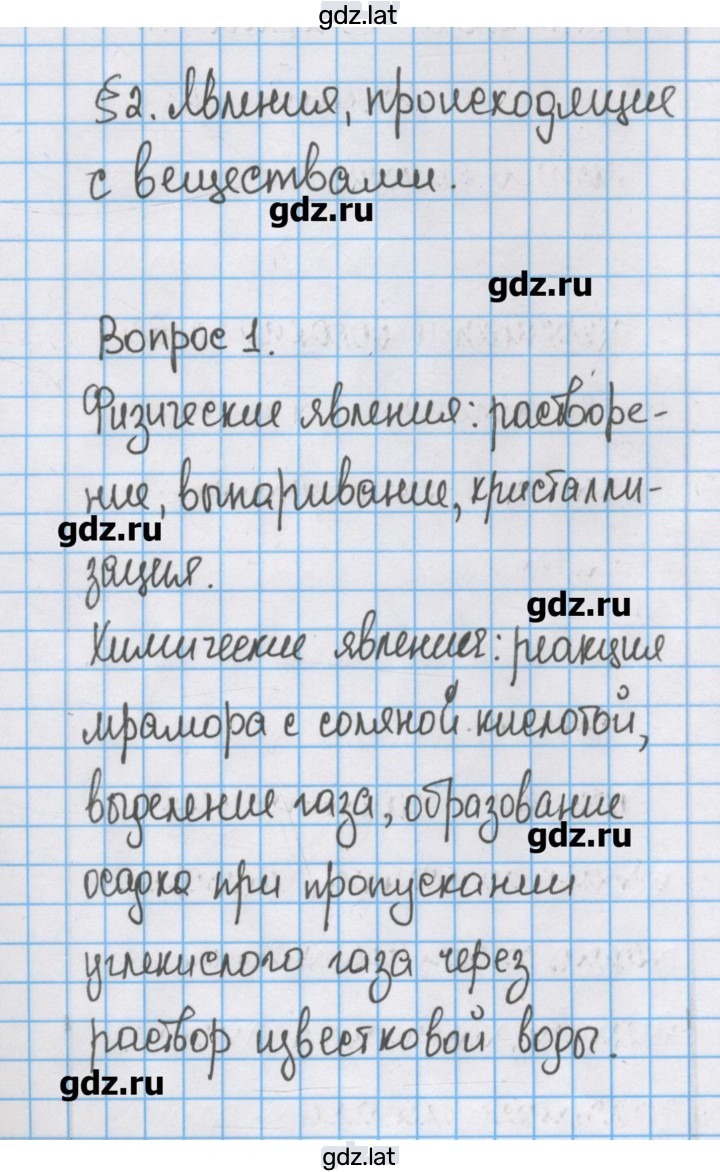 gdz.lat
§2. Явления, происходящие
с веществами.
gdz.ru
gdz.ru
Вопрос 1.
Физические явления: растворе-
ние, выпаривание, кристалли-
gdz.ru
зация.
gdz.ru
Химические явления: реакция
мрамора с соляной кислотой,
выделение газа, образование
gdz.ru
осадка при пропускании
углекислого газа через
раствор известковой воды.
gdz.ru
gdz.lat